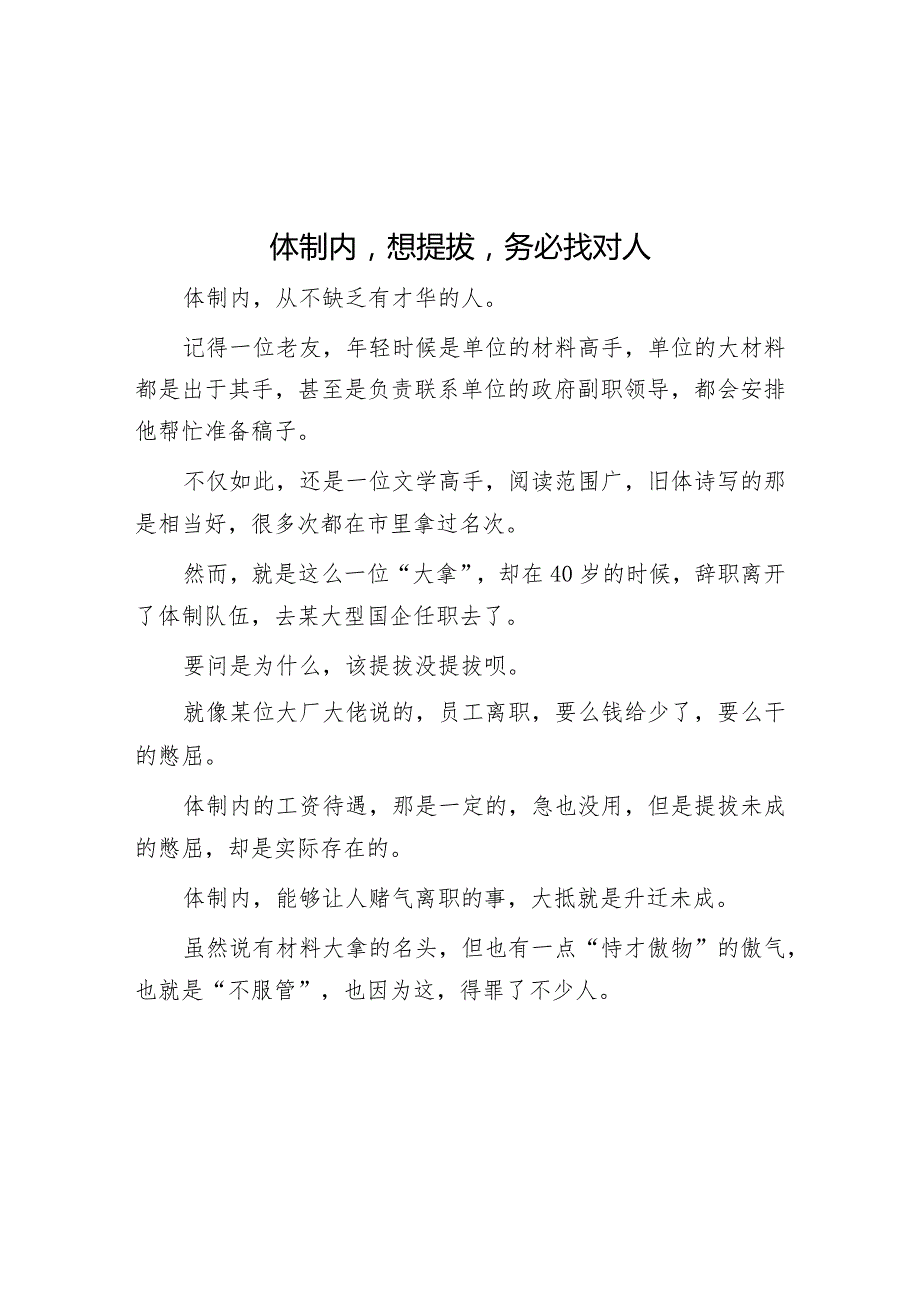 体制内，想提拔，务必找对人
体制内，从不缺乏有才华的人。
记得一位老友，年轻时候是单位的材料高手，单位的大材料
都是出于其手，甚至是负责联系单位的政府副职领导，都会安排
他帮忙准备稿子。
不仅如此，还是一位文学高手，阅读范围广，旧体诗写的那
是相当好，很多次都在市里拿过名次。
然而，就是这么一位“大拿”，却在 40 岁的时候，辞职离开
了体制队伍，去某大型国企任职去了。
要问是为什么，该提拔没提拔呗。
就像某位大厂大佬说的，员工离职，要么钱给少了，要么干
的憋屈。
体制内的工资待遇，那是一定的，急也没用，但是提拔未成
的憋屈，却是实际存在的。
体制内，能够让人赌气离职的事，大抵就是升迁未成。
虽然说有材料大拿的名头，但也有一点“恃才傲物”的傲气，
也就是“不服管”，也因为这，得罪了不少人。